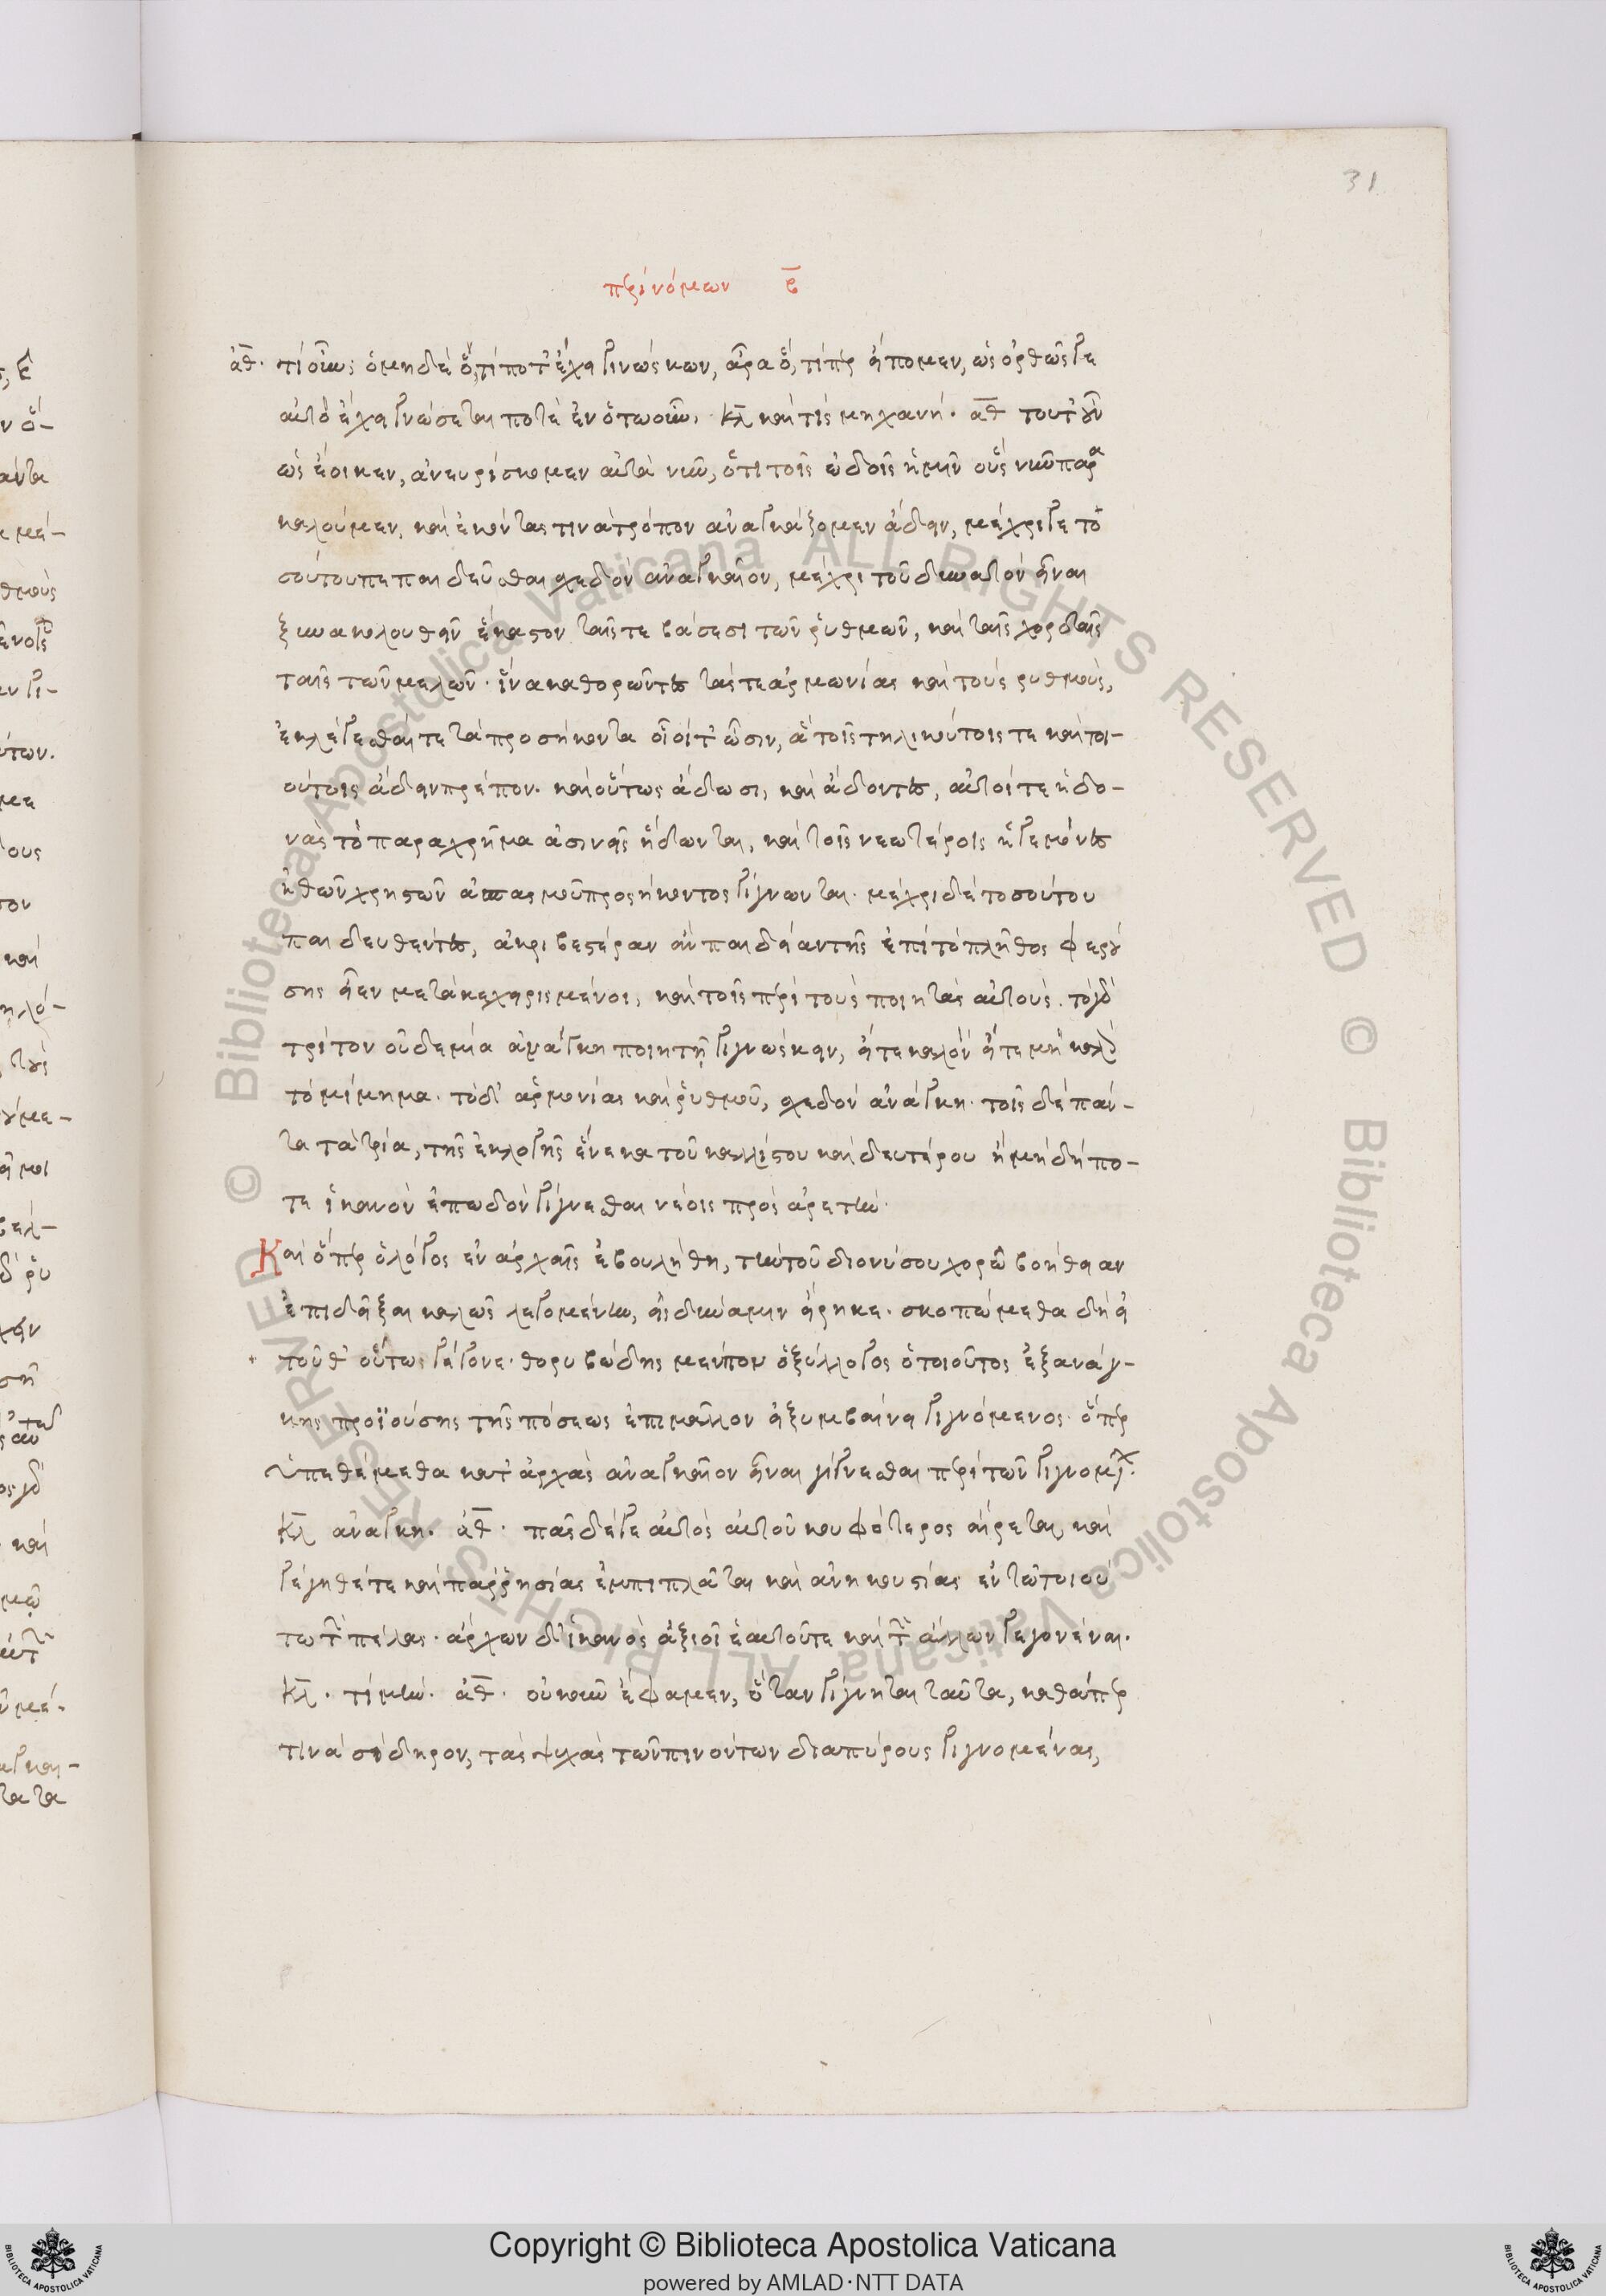 31
περὶ νόμων β̄
ἀθ. τί οὖν; ὁ μηδὲ ὅ, τί ποτ' ἔχει γινώσκων, ἆρα ὅ, τί περ εἴπομεν, ὡς ὀρθῶς γε
αὐτὸ ἔχει γνώσεταί ποτε ἐν ὁτωοῦν. κλ καὶ τίς μηχανή. ἀθ τοῦτ' οὖν
ὡς ἔοικεν, ἀνευρίσκομεν αὐτὰ νῦν, ὅτι τοῖς ὠδοῖς ἡμῖν οὓς νῦν παρα
καλοῦμεν, καὶ ἑκόντας τινὰ τρόπον ἀναγκάζομεν ἄδειν, μέχρι γε το
σούτου πεπαιδεῦσθαι σχεδὸν ἀναγκαῖον, μέχρι τοῦ δυνατὸν εἶναι
ξυνακολουθεῖν ἕκαστον ταῖς τε βάσεσι τῶν ῥυθμῶν, καὶ ταῖς χορδαῖς
ταῖς τῶν μελῶν. ἵνα καθορῶντες τάς τε ἁρμονίας καὶ τοὺς ῥυθμοὺς,
ἐκλέγεσθαί τε τὰ προσήκοντα οἷοί τ' ὦσιν, ἃ τοῖς τηλικούτοις τε καὶ τοι-
ούτοις ἄδειν πρέπον. καὶ οὕτως ἄδωσι, καὶ ἄδοντες, αὐτοί τε ἡδο-
νὰς τὸ παραχρῆμα ἀσινεῖς ἥδωνται, καὶ τοῖς νεωτέροις ἡγεμόνες
ἠθῶν χρηστῶν ἀσπασμοῦ προσήκοντος γίγνωνται. μέχρι δὲ τοσούτου
παιδευθέντες, ἀκριβεστέραν ἂν παιδείαν τῆς ἐπὶ τὸ πλῆθος φερού
σης εἶεν μετακεχειρισμένοι, καὶ τοῖς περὶ τοὺς ποιητὰς αὐτούς. τὸ γὰρ
τρίτον οὐδεμία ἀνάγκη ποιητῇ γιγνώσκειν, εἴτε καλὸν εἴτε μὴ καλὸν
τὸ μίμημα. τὸ δ' ἁρμονίας καὶ ῥυθμοῦ, σχεδὸν ἀνάγκη. τοῖς δὲ πάν-
τα τὰ τρία, τῆς ἐκλογῆς ἕνεκα τοῦ καλλίστου καὶ δευτέρου ἢ μηδήπο-
τε ἱκανὸν ἐπωδὸν γίγνεσθαι νέοις πρὸς ἀρετήν.
Καὶ ὅπερ ὁ λόγος ἐν ἀρχαῖς ἐβουλήθη, τὴν τοῦ διονύσου χορῶ βοήθειαν
ἐπιδεῖξαι καλῶς λεγομένην, εἰς δύναμιν εἴρηκε. σκοπώμεθα δὴ εἰ
τοῦθ' οὕτως γέγονε. θορυβώδης μέν που ὁ ξύλλογος ὁ τοιοῦτος ἐξ ανάγ-
κης προϊούσης τῆς πόσεως ἐπιμᾶλλον ἀξυμβαίνει γιγνόμενος. ὅπερ
ὑπεθέμεθα κατ' ἀρχὰς ἀναγκαῖον εἶναι γίγνεσθαι περὶ τῶν γιγνομέν.
κλ ἀνάγκη. ἀθ. πᾶς δέ γε αὐτὸς αὐτοῦ κουφότερος αἴρεται, καὶ
γέγηθέ τε καὶ παρρησίας ἐμπίπλαται καὶ ἀνηκουστίας ἐν τῶ τοιού
τω τῶν πέλας. ἄρχων δ' ἱκανὸς ἀξιοῖ ἑαυτοῦ τε καὶ τῶν ἄλλων γεγονέναι.
κλ. τί μήν. ἀθ. οὐκοῦν ἔφαμεν, ὅταν γίγνηται ταῦτα, καθάπερ
τινὰ σίδηρον, τὰς ψυχὰς τῶν πινόντων διαπύρους γιγνομένας,
Copyright © Biblioteca Apostolica Vaticana
powered by AMLAD·NTT DATA